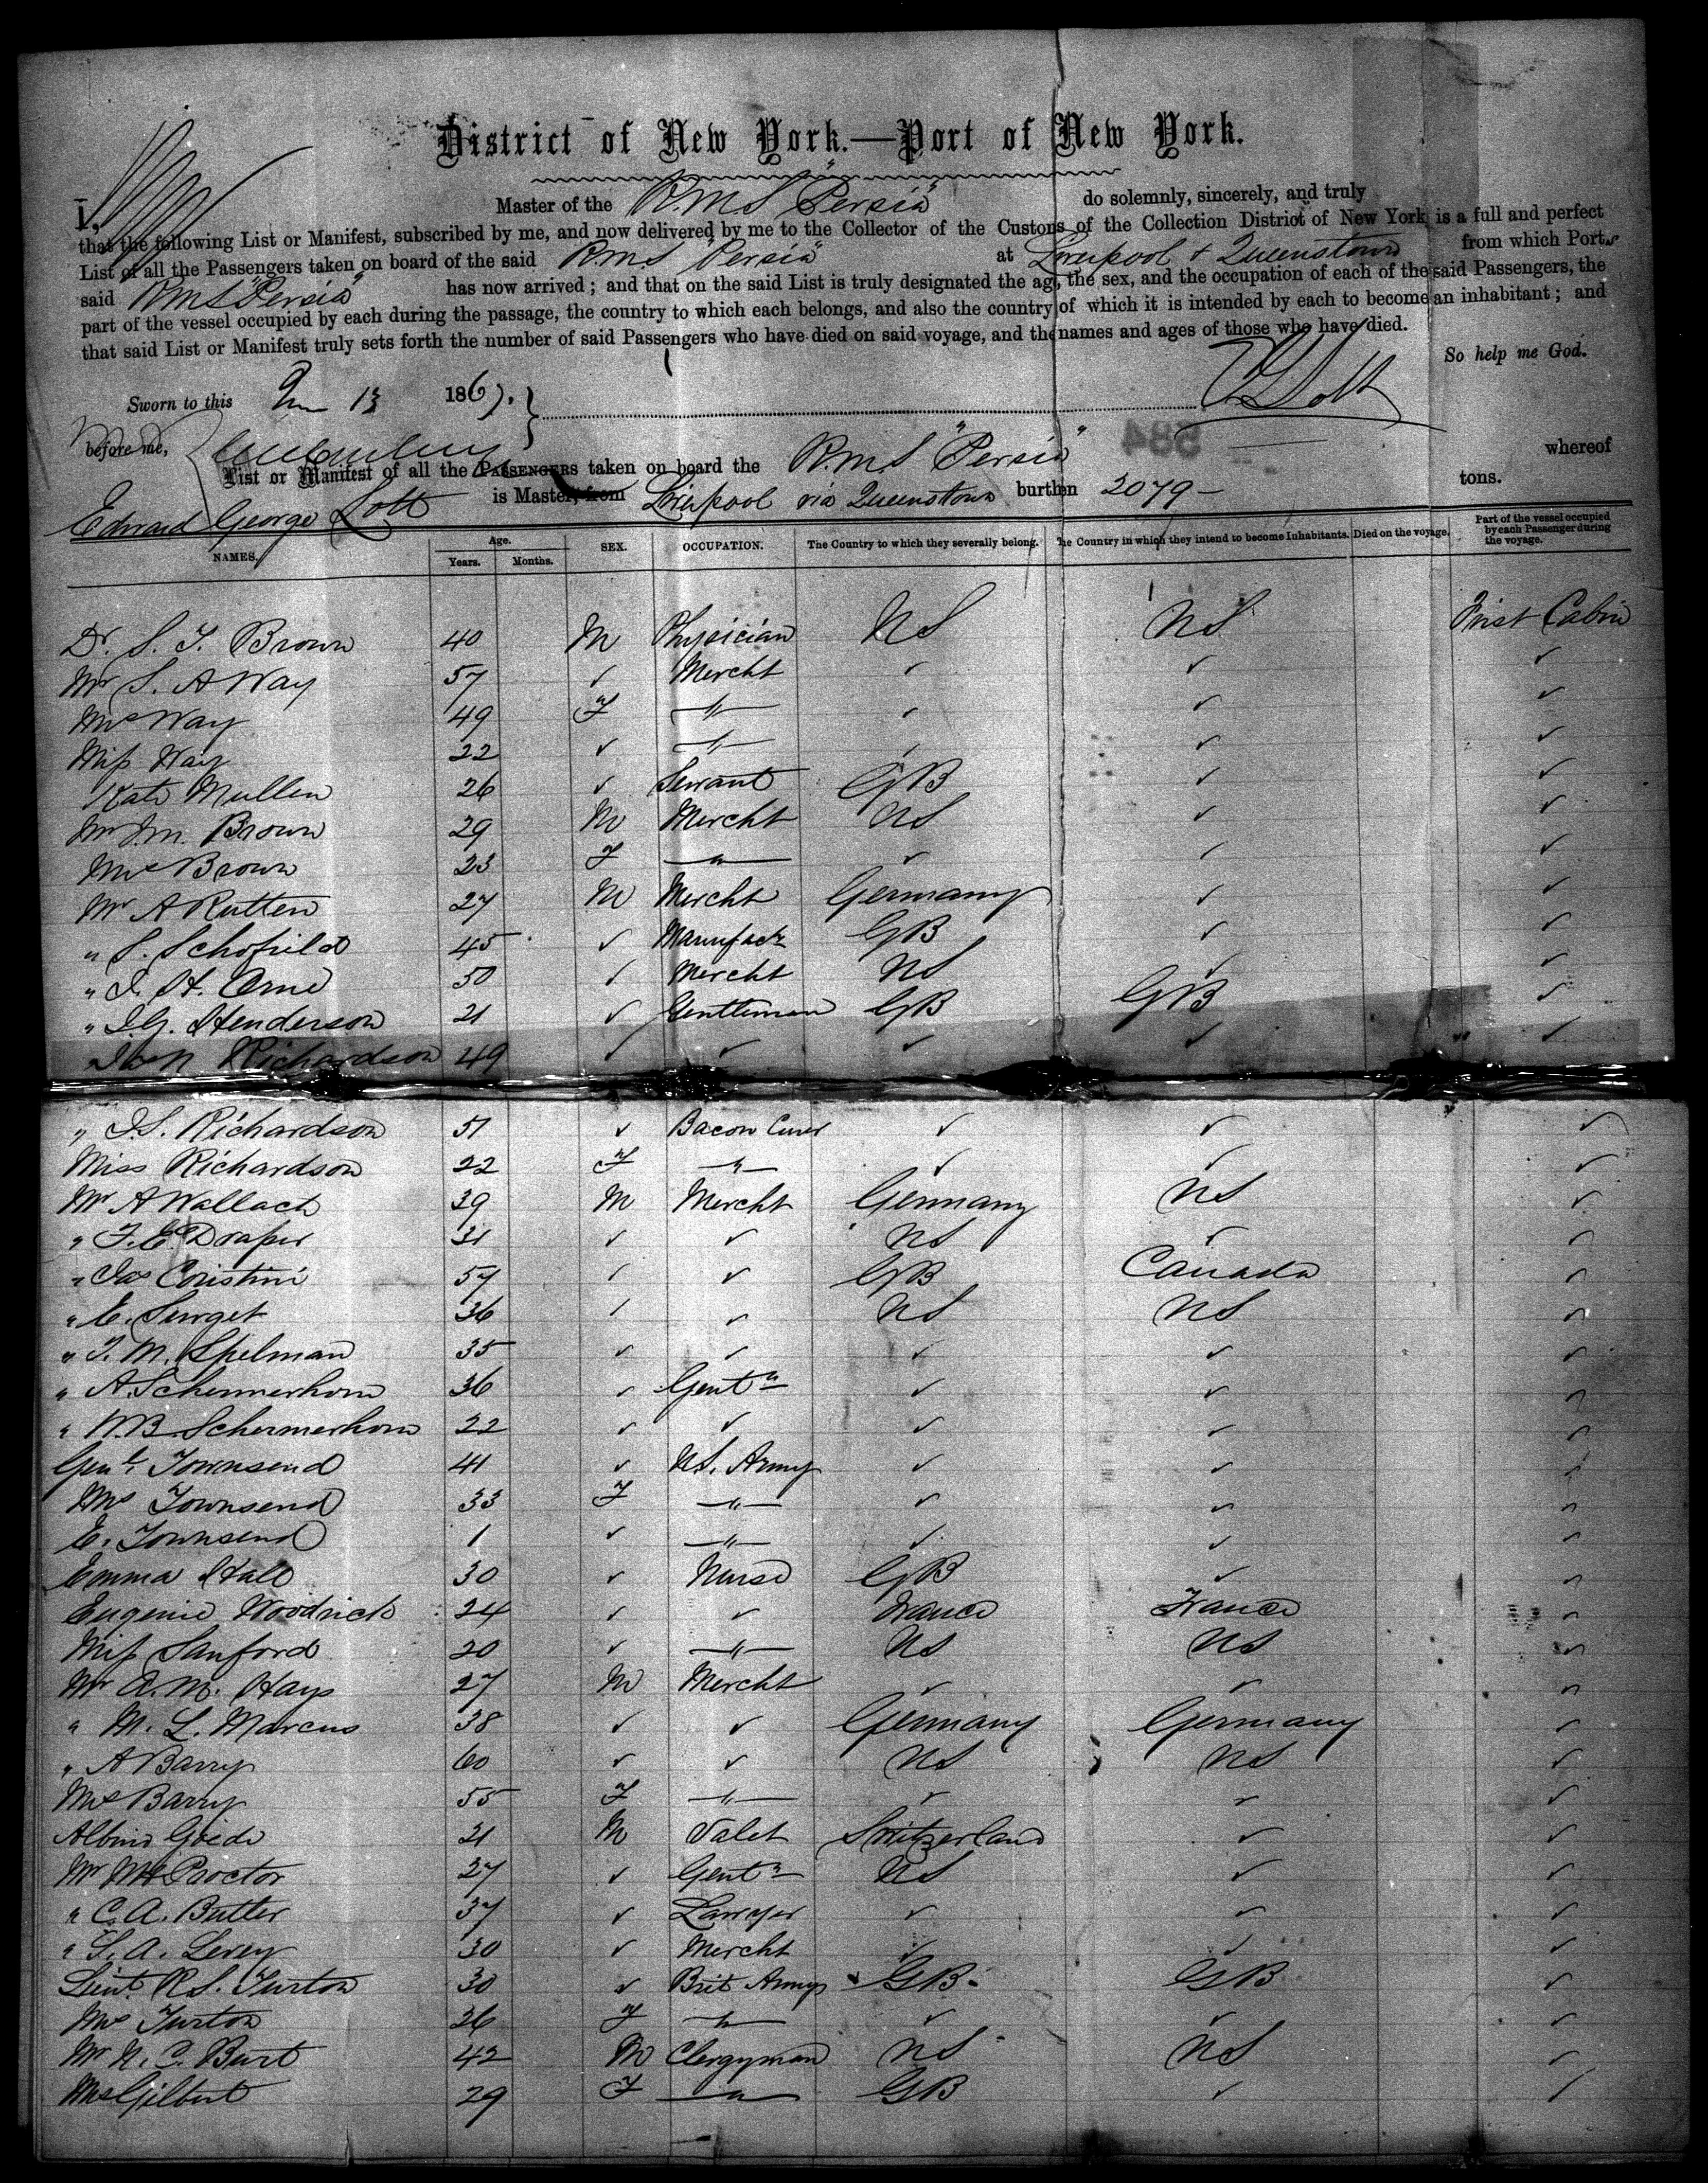 District of New York.—Port of New York.
I, Master of the R.M.S "Persia" do solemnly, sincerely, and truly
that the following List or Manifest, subscribed by me, and now delivered by me to the Collector of the Customs of the Collection District of New York is a full and perfect
List of all the Passengers taken on board of the said R.M.S "Persia" at Liverpool + Queenstown from which Ports
said R.M.S "Persia" has now arrived; and that on the said List is truly designated the age, the sex, and the occupation of each of the said Passengers, the
part of the vessel occupied by each during the passage, the country to which each belongs, and also the country of which it is intended by each to become an inhabitant; and
that said List or Manifest truly sets forth the number of said Passengers who have died on said voyage, and the names and ages of those who have died.
So help me God.
Sworn to this 13 1867. E G Lott
before me,
List or Manifest of all the PASSENGERS taken on board the R.M.S "Persia" whereof
Edward George Lott is Master, from Liverpool via Queenstown burthen 2079 — tons.
NAMES. Age. Years. Months. SEX. OCCUPATION. The Country to which they severally belong. The Country in which they intend to become Inhabitants. Died on the voyage. Part of the vessel occupied by each Passenger during the voyage.
Dr. S. T. Brown 40 M Physician US US First Cabin
Mr S. A Way 57 ✓ Mercht ✓ ✓ ✓
Mrs Way 49 F —"— ✓ ✓ ✓
Miss Way 22 ✓ —"— ✓ ✓ ✓
Kate Mullen 26 ✓ Servant GB ✓ ✓
Mr J.M. Brown 29 M Mercht US ✓ ✓
Mrs Brown 23 F —"— ✓ ✓ ✓
Mr A Rutten 27 M Mercht Germany ✓ ✓
" S. Schofield 45 ✓ Manufactr GB ✓ ✓
" J. H. Orne 50 ✓ Mercht US ✓ ✓
" J.G. Henderson 21 ✓ Gentleman GB GB ✓
Richardson 49 ✓ ✓ ✓ ✓ ✓
" J.S. Richardson 51 ✓ Bacon Curer ✓ ✓ ✓
Miss Richardson 22 F —"— ✓ ✓ ✓
Mr A Wallach 39 M Mercht Germany US ✓
" F. E. Draper 31 ✓ ✓ US ✓ ✓
" Jas Coristine 57 ✓ ✓ GB Canada ✓
" E. Surget 36 ✓ ✓ US US ✓
" T. M. Spelman 35 ✓ ✓ ✓ ✓ ✓
" A. Schermerhorn 36 ✓ Gentn ✓ ✓ ✓
" N.B Schermerhorn 22 ✓ ✓ ✓ ✓ ✓
Genl. Townsend 41 ✓ U.S. Army ✓ ✓ ✓
Mrs Townsend 33 F —"— ✓ ✓ ✓
E. Townsend 1 ✓ —"— ✓ ✓ ✓
Emma Hall 30 ✓ Nurse GB ✓ ✓
Eugenie Woodrick 24 ✓ ✓ France France ✓
Miss Sanford 20 ✓ —"— US US ✓
Mr A. M. Hays 27 M Mercht ✓ ✓ ✓
" M. L. Marcus 38 ✓ ✓ Germany Germany ✓
" A Barry 60 ✓ ✓ US US ✓
Mrs Barry 55 F —"— ✓ ✓ ✓
Albino 21 M Valet Switzerland ✓ ✓
Mr Proctor 27 ✓ Gentn US ✓ ✓
" C. A. Butler 37 ✓ Lawyer ✓ ✓ ✓
" S. A. Levey 30 ✓ Mercht ✓ ✓ ✓
Lieut. R. S. Turton 30 ✓ Brit Army GB GB ✓
Mrs Turton 26 F —"— ✓ ✓ ✓
Mr N. C. Burt 42 M Clergyman US US ✓
Mrs Gilbert 29 F —"— GB ✓ ✓